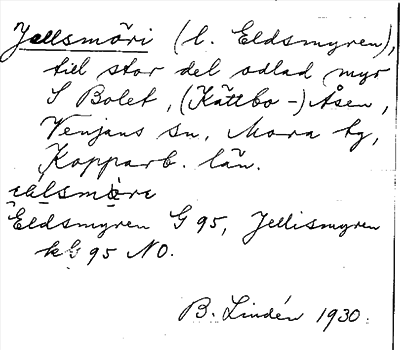 Jellsmöri (l. Eldsmyren),
till stor del odlad myr
S Bolet, (Kättbo-) Åsen,
Venjans sn, Mora tg,
Kopparb. län.
Eldsmyren G 95, Jellismyren
kG 95 NO.
B. Lindén 1930.